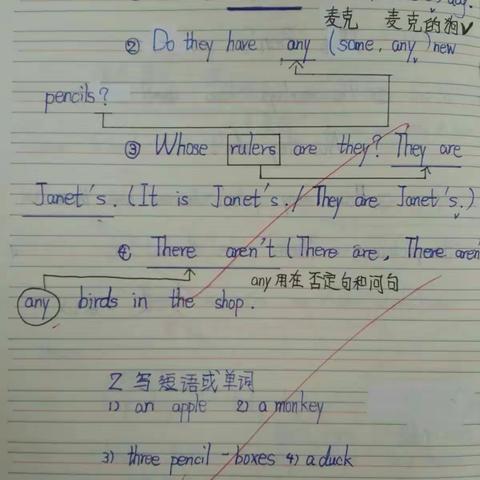 麦克 麦克的狗√
② Do they have any (some, any) new
pencils?
③ Whose rulers are they? They are
Janet's. (It is Janet's. / They are Janet's.)
④ There aren't (There are, There aren
any 用在否定句和问句
any birds in the shop.
2 写短语或单词
1) an apple 2) a monkey
3) three pencil-boxes 4) a duck